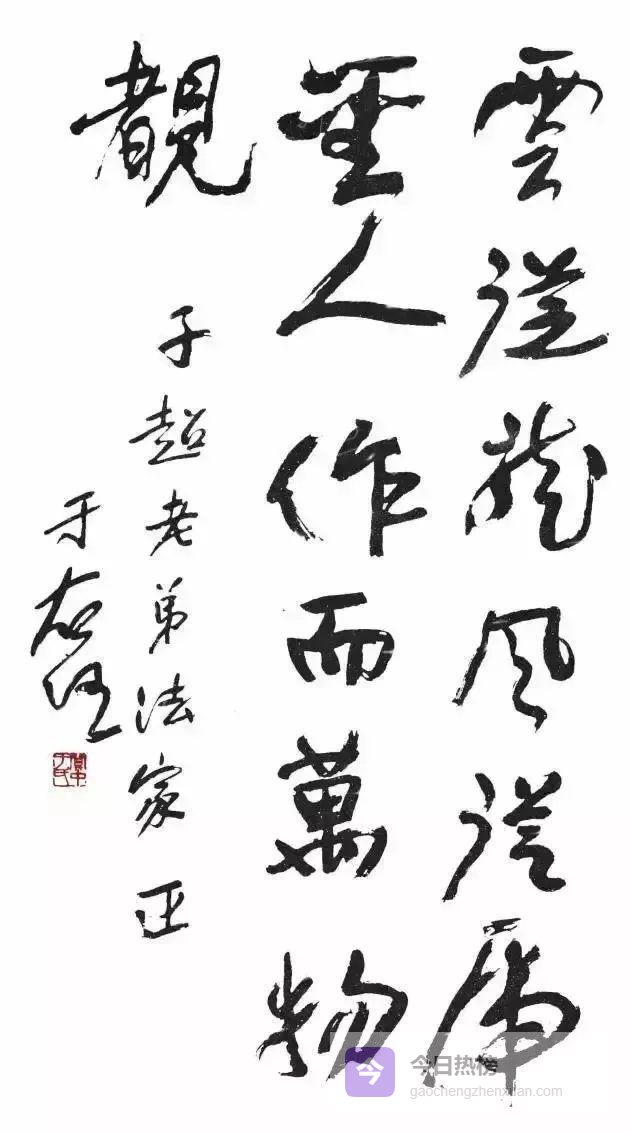 雲從龍風從虎
聖人作而萬物
覩
子超老弟法家正
于右任
關中于氏
今 今日热榜
gaochengzhenxuan.com